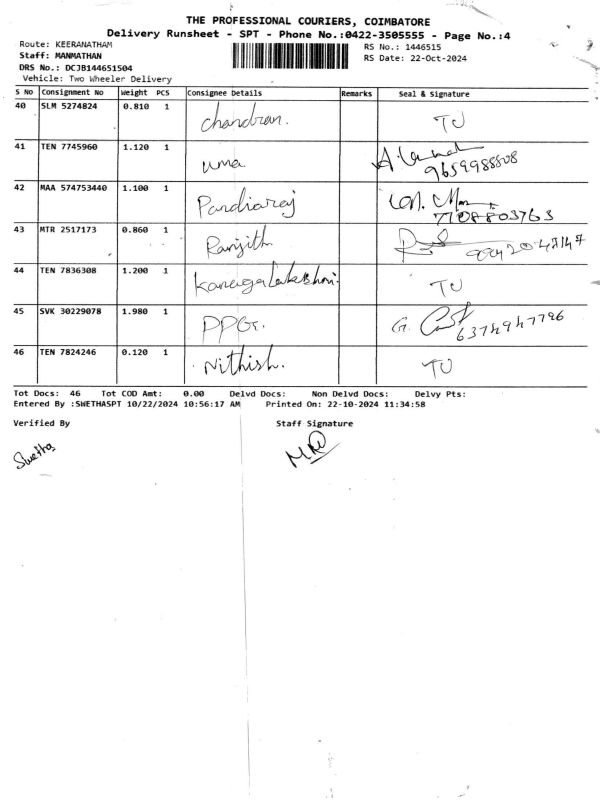 THE PROFESSIONAL COURIERS, COIMBATORE
Delivery Runsheet - SPT - Phone No.:0422-3505555 - Page No.:4
Route: KEERANATHAM
RS No.: 1446515
Staff: MANMATHAN
RS Date: 22-Oct-2024
DRS No.: DCJB144651504
Vehicle: Two Wheeler Delivery
S No Consignment No Weight PCS Consignee Details Remarks Seal & Signature
40 SLM 5274824 0.810 1 chandran. TU
41 TEN 7745960 1.120 1 uma 9659988508
42 MAA 574753440 1.100 1 Pandiaraj 7708803763
43 MTR 2517173 0.860 1 Ranjith
44 TEN 7836308 1.200 1 Kanagalakshmi. TU
45 SVK 30229078 1.980 1 PPG. G. 6374947796
46 TEN 7824246 0.120 1 Nithish. TU
Tot Docs: 46 Tot COD Amt: 0.00 Delvd Docs: Non Delvd Docs: Delvy Pts:
Entered By :SWETHASPT 10/22/2024 10:56:17 AM Printed On: 22-10-2024 11:34:58
Verified By Staff Signature
Swetha